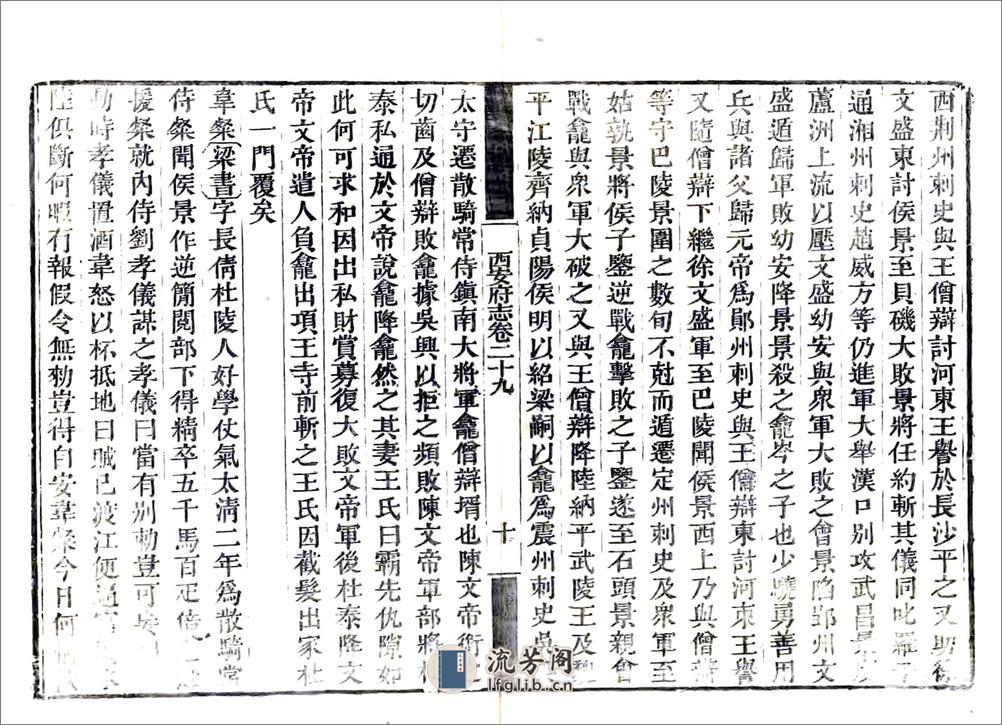 西荆州刺史與王僧辯討河東王譽於長沙平之又助徐
文盛東討侯景至貝磯大敗景將任約斬其儀同叱羅子
通湘州刺史趙威方等仍進軍大舉漢口別攻武昌景
蘆洲上流以壓文盛幼安與衆軍大敗之會景陷郢州文
盛遁歸軍敗幼安降景景殺之龕岑之子也少驍勇善用
兵與諸父歸元帝爲鄖州刺史與王僧辯東討河東王譽
又隨僧辯下繼徐文盛軍至巴陵聞侯景西上乃與僧辯
等守巴陵景圍之數旬不尅而遁遷定州刺史及衆軍至
姑孰景將侯子鑒逆戰龕擊敗之子鑒遂至石頭景親會
戰龕與衆軍大破之又與王僧辯降陸納平武陵王及魏
平江陵齊納貞陽侯明以紹梁嗣以龕爲震州刺史吳
西安府志卷二十九
十
太守遷散騎常侍鎮南大將軍龕僧辯壻也陳文帝銜
切齒及僧辯敗龕據吳興以拒之頻敗陳文帝軍部將杜
泰私通於文帝說龕降龕然之其妻王氏曰霸先仇隙如
此何可求和因出私財賞募復大敗文帝軍後杜泰降文
帝文帝遣人負龕出項王寺前斬之王氏因截髮出家杜
氏一門覆矣
韋粲梁書字長倩杜陵人好學仗氣太清二年爲散騎常
侍粲聞侯景作逆簡閱部下得精卒五千馬百疋倍
援粲就內侍劉孝儀謀之孝儀曰當有别勅豈可
動時孝儀置酒韋怒以杯抵地曰賊已渡江便逼宮
陸俱斷何暇有報假令無勅豈得自安韋粲今日何
流芳阁
lfglib.cn